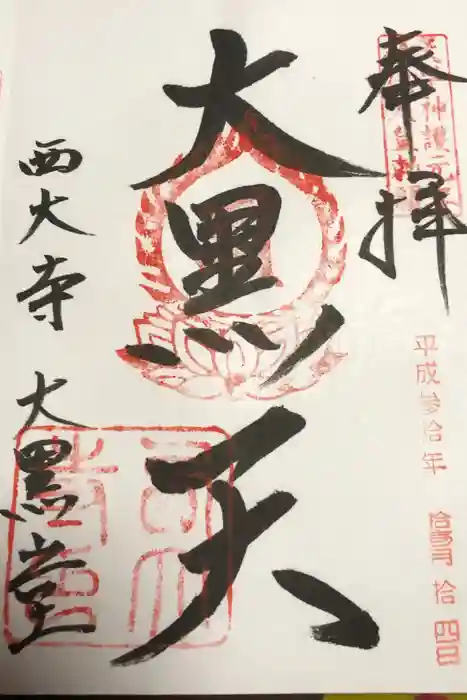 奉拝
神護元
平成参拾年 拾壹月 拾四日
大黒天
西大寺 大黒堂